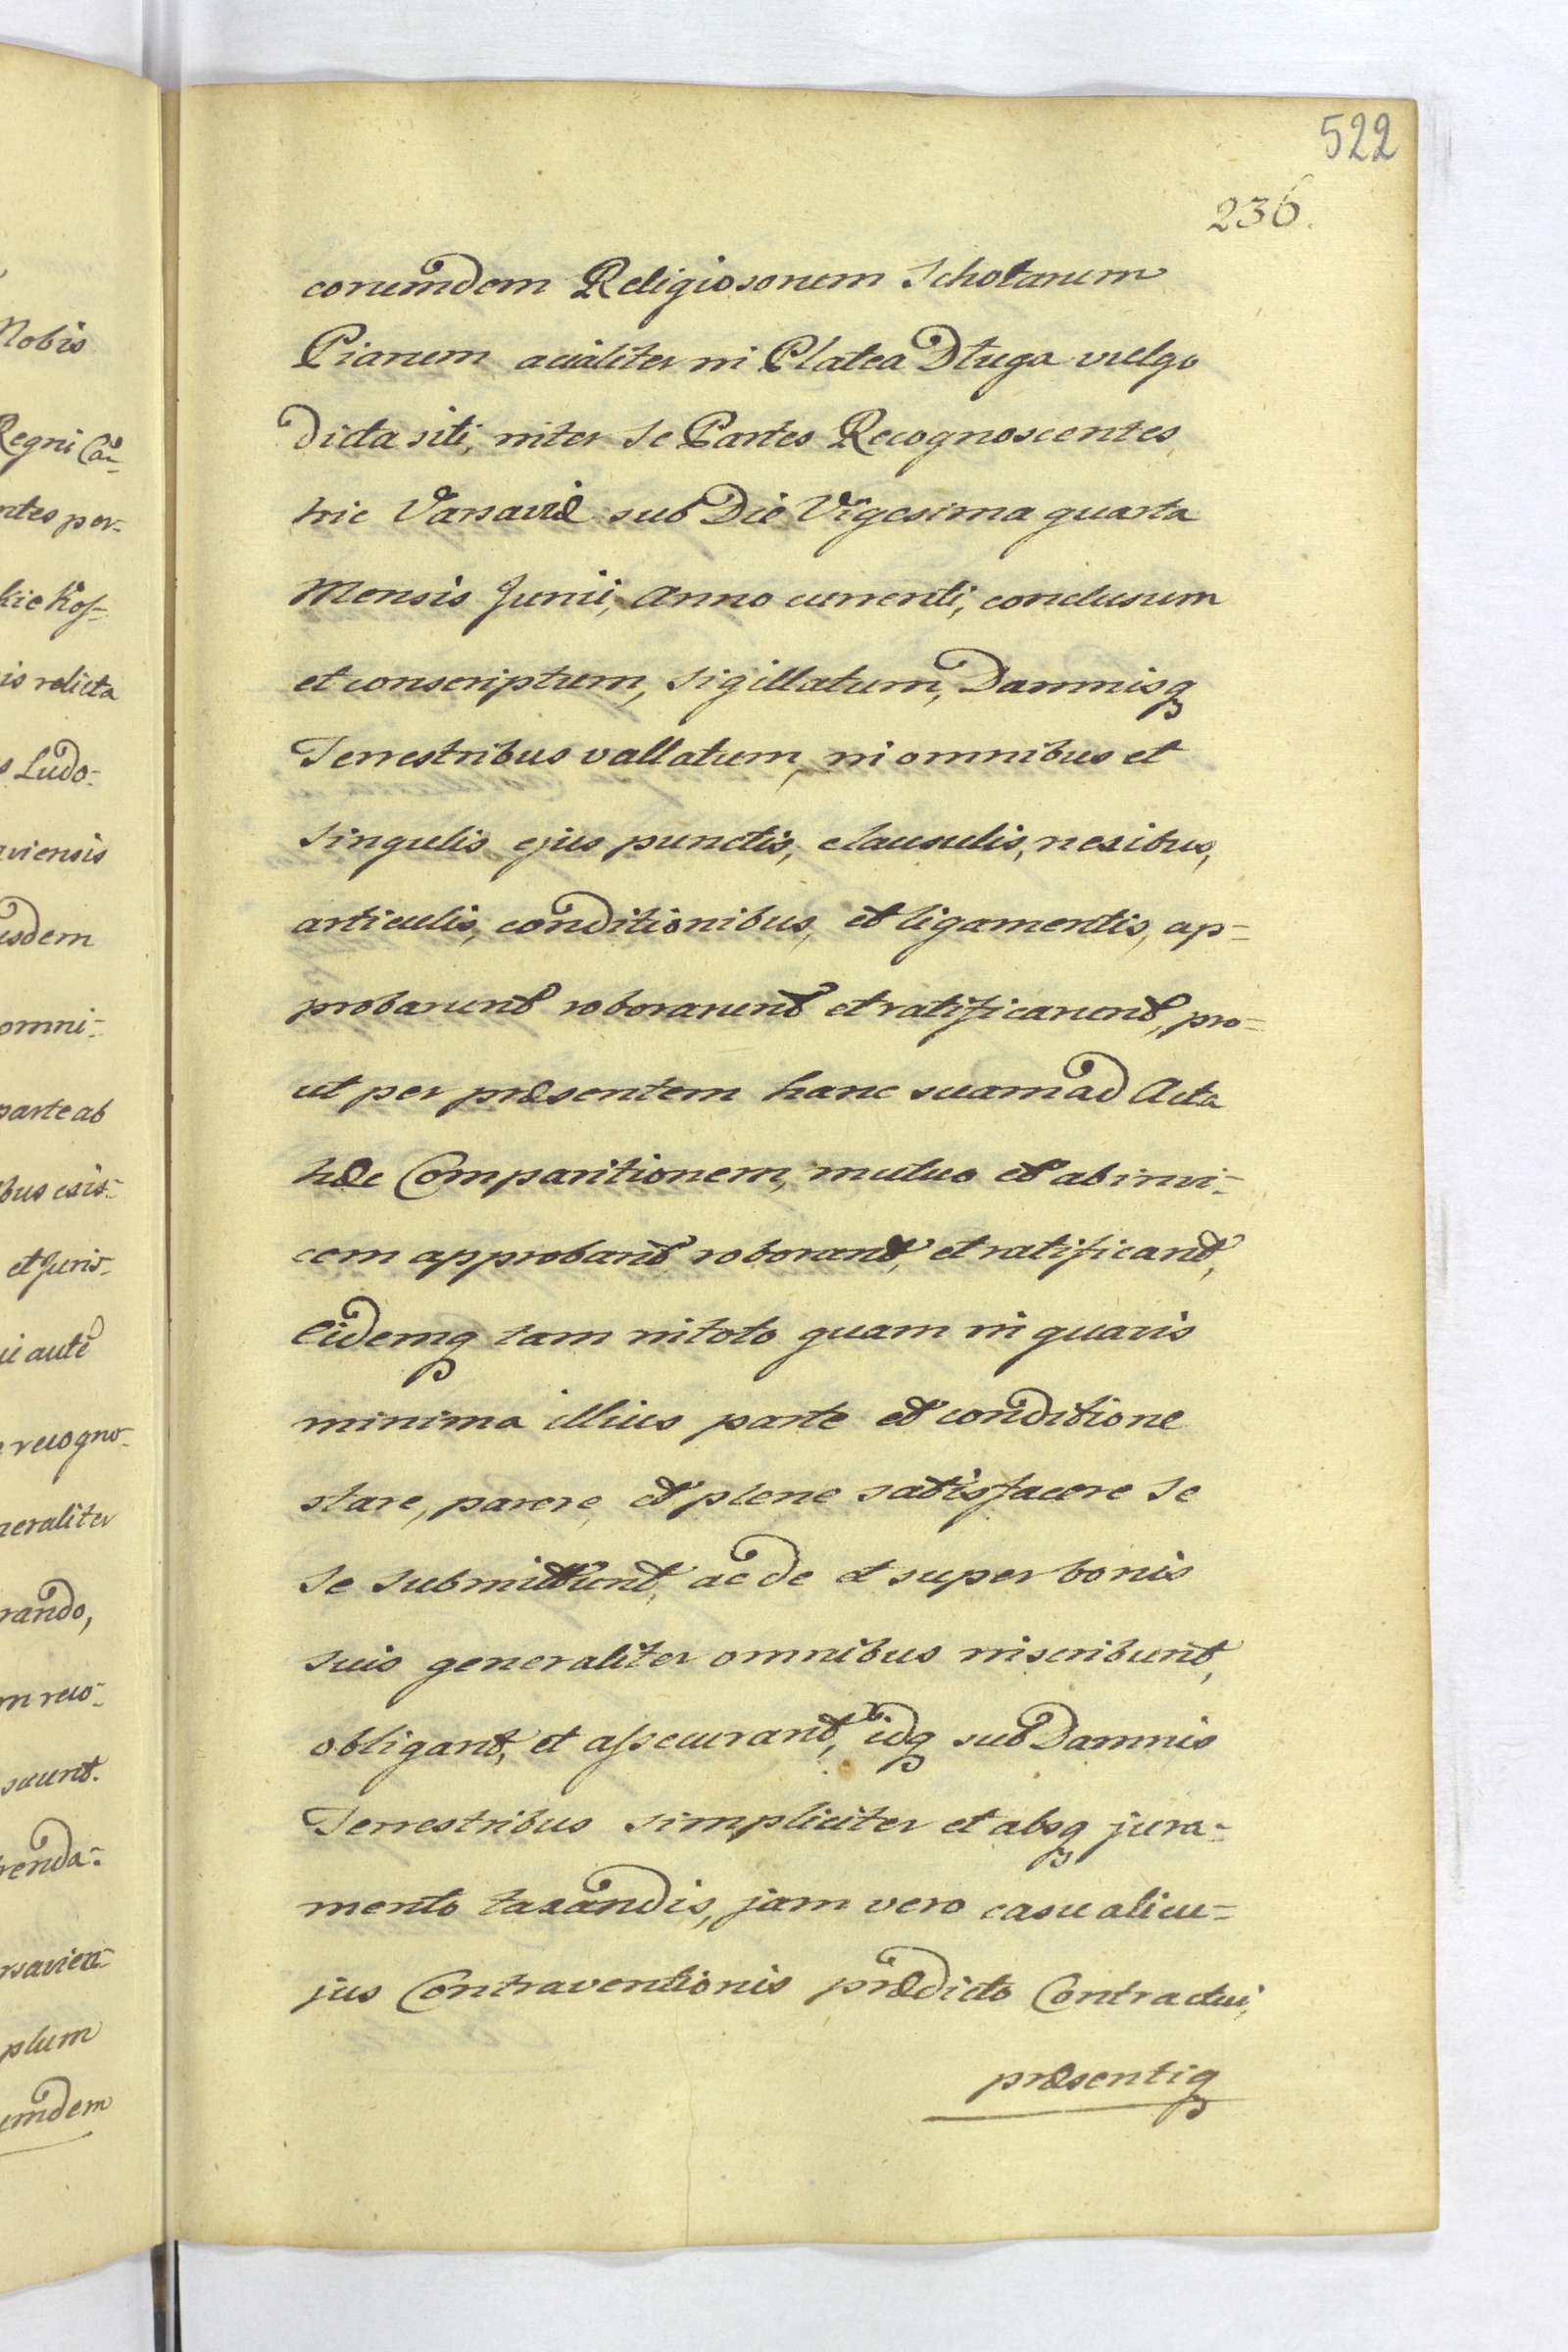 522
236.
eorumdem Religiosorum Scholarum
Piarum acialiter in Platea Długa vulgo
dicta siti, inter se Partes Recognoscentes,
hic Varsaviæ sub Die Vigesima quarta
Mensis Junii, Anno currenti, conclusum
et conscriptum, sigillatum, Damnisq
Terrestribus vallatum, in omnibus et
singulis ejus punctis, clausulis, nexibus,
articulis, conditionibus, et ligamentis, ap=
probarunt roborarunt et ratificarunt, pro=
ut per præsentem hanc suam ad Acta
hæc Comparitionem, mutuo et ab invi=
cem approbant roborant, et ratificant,
Eidemq tam in toto quam in quavis
minima illius parte et conditione
stare, parere, et plene satisfacere se
se submittunt, ac de et super bonis
suis generaliter omnibus inscribunt,
obligant, et assecurant, idq sub Damnis
Terrestribus simpliciter et absq jura=
mento taxandis, jam vero casu alicu=
jus Contraventionis prædicto Contractui,
præsentiq
Nobis
Regni
relicta
Ludo=
omni=
parte ab
et Juris=
recogno=